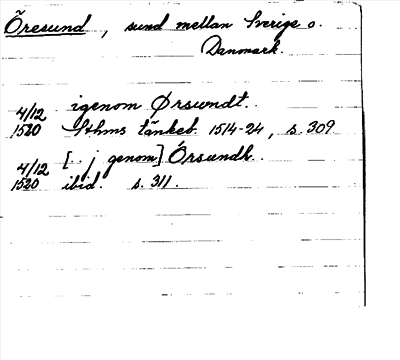 Öresund, sund mellan Sverige o.
Danmark.
4/12 igenom Ørsundt.
1520 Sthms tänkeb. 1514-24, s. 309
4/12 [.. j genom] Örsundh.
1520 ibid. s. 311.